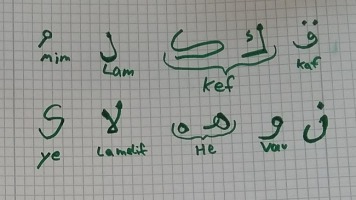 م ل ک ك ق
mim Lam kef kaf
ى لا ه هـ و ن
ye Lamelif He Vav